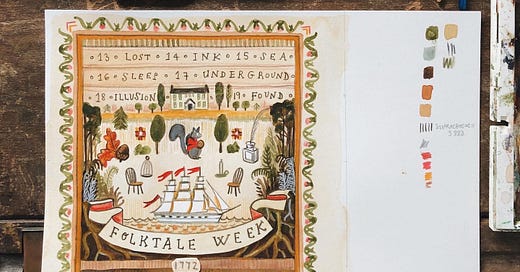 13 · LOST · 14 · INK · 15 · SEA
16 · SLEEP · 17 · UNDERGROUND
18 · ILLUSION · 19 · FOUND
FOLKTALE WEEK
1772